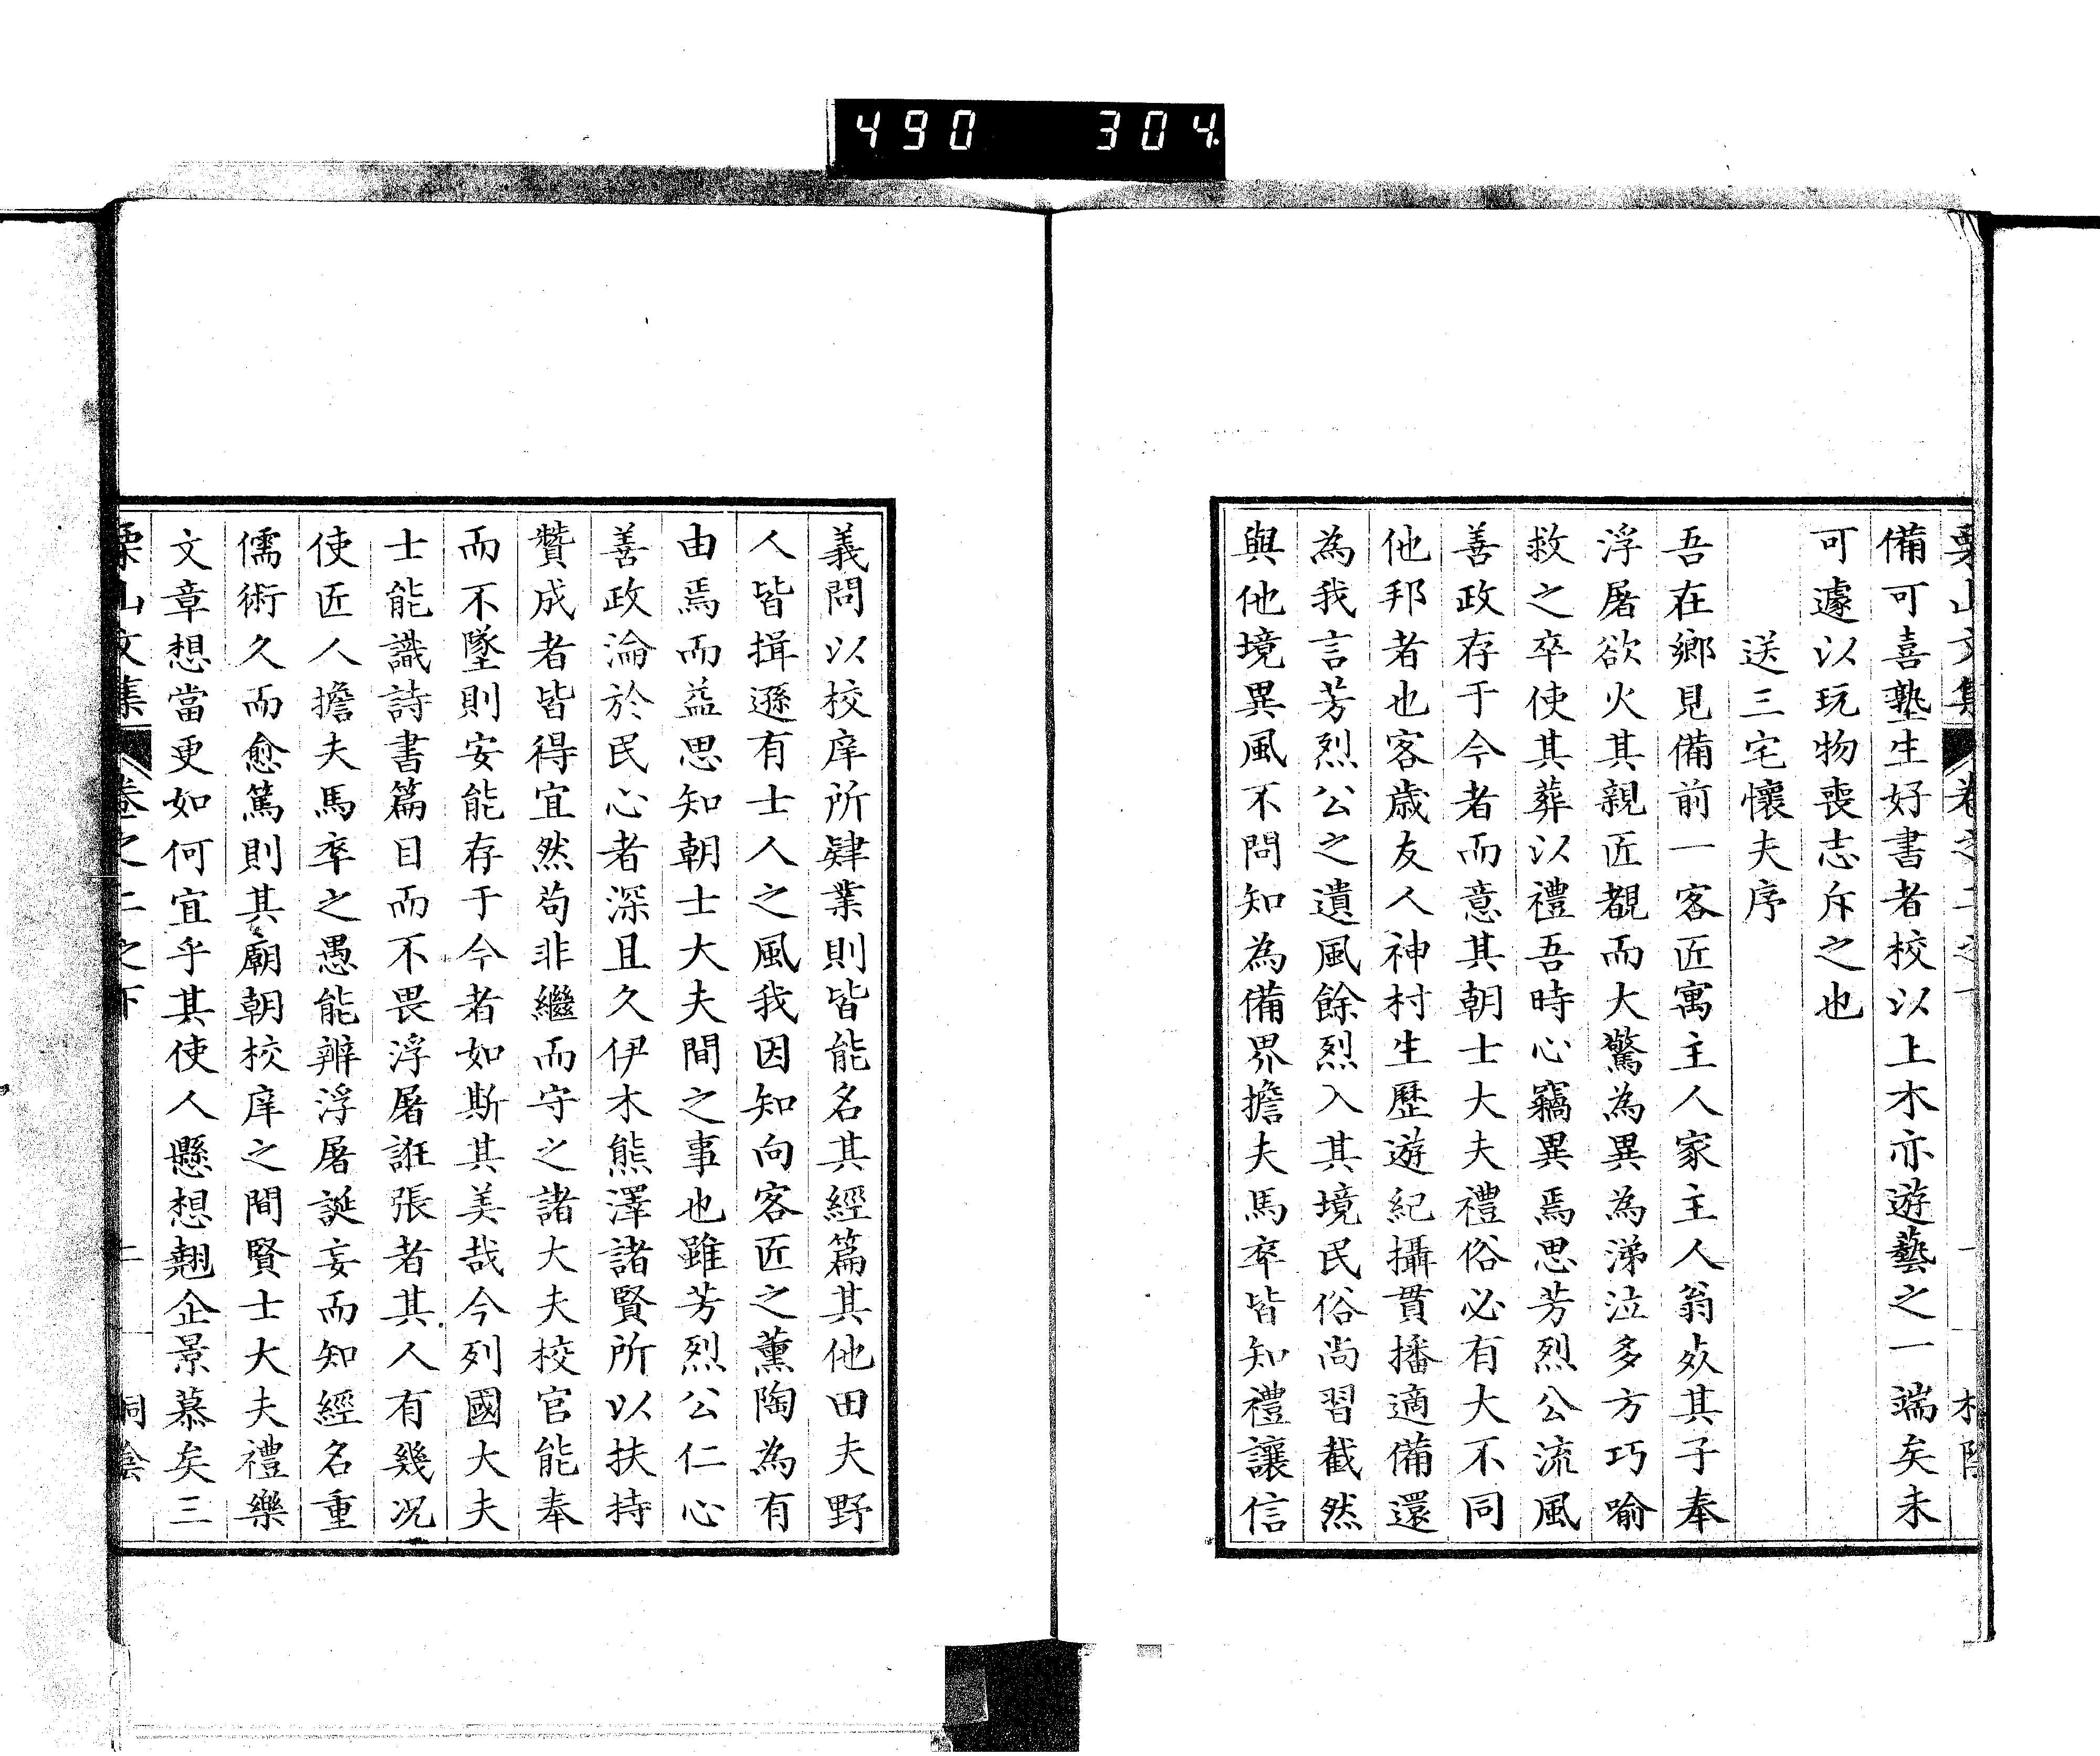 490 304
栗山文集 卷之二之下
備可喜塾生好書者校以上木亦遊藝之一端矣未
可遽以玩物喪志斥之也
送三宅懷夫序
吾在鄉見備前一客匠寓主人家主人翁死其子奉
浮屠欲火其親匠覩而大驚為異為涕泣多方巧喻
救之卒使其葬以禮吾時心竊異焉思芳烈公流風
善政存于今者而意其朝士大夫禮俗必有大不同
他邦者也客歲友人神村生歷遊紀攝貫播適備還
為我言芳烈公之遺風餘烈入其境民俗尚習截然
與他境異風不問知為備界擔夫馬卒皆知禮讓信
義問以校庠所肄業則皆能名其經篇其他田夫野
人皆揖遜有士人之風我因知向客匠之薰陶為有
由焉而益思知朝士大夫間之事也雖芳烈公仁心
善政淪於民心者深且久伊木熊澤諸賢所以扶持
贊成者皆得宜然苟非繼而守之諸大夫校官能奉
而不墜則安能存于今者如斯其美哉今列國大夫
士能識詩書篇目而不畏浮屠誑張者其人有幾況
使匠人擔夫馬卒之愚能辨浮屠誕妄而知經名重
儒術久而愈篤則其廟朝校庠之間賢士大夫禮樂
文章想當更如何宜乎其使人懸想翹企景慕矣三
栗山文集 卷之二之下 二 桐陰